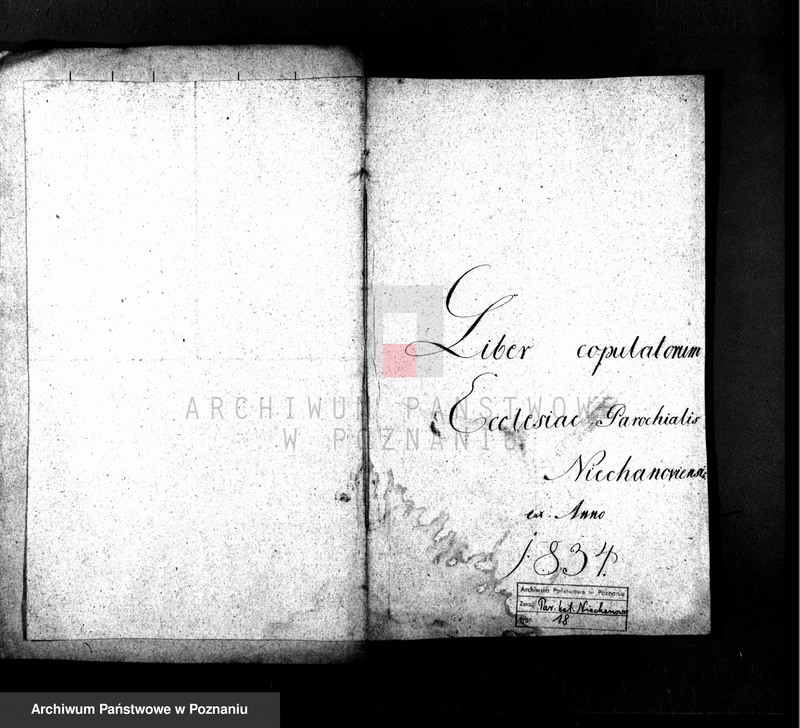 Liber copulatorum
Ecclesiae Parochialis
Niechanoviensis
ex Anno
1834.
Archiwum Państwowe w Poznaniu
Zespół Par. kat. Niechanowo
18
ARCHIWUM PAŃSTWOWE
W POZNANIU
Archiwum Państwowe w Poznaniu